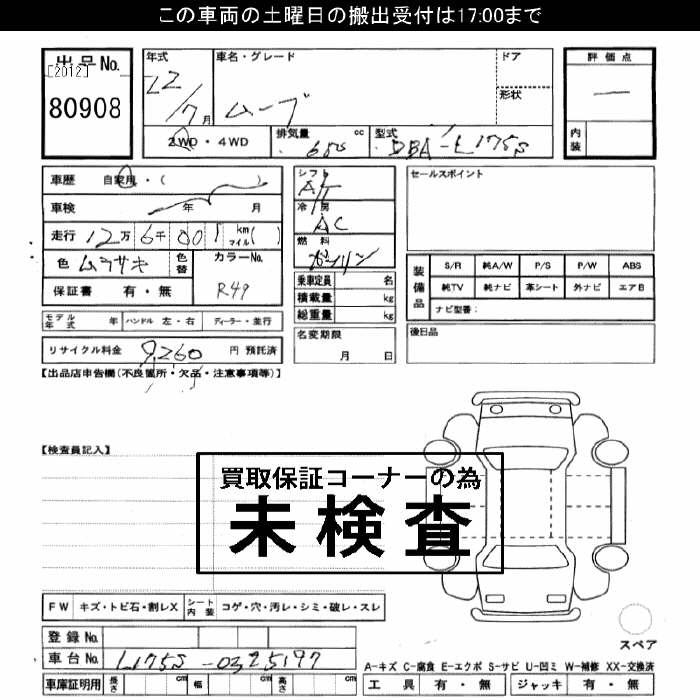 この車両の土曜日の搬出受付は17:00まで
出品No.
[2012]
80908
年式 車名・グレード ドア
12/7月 ムーブ
形状
2WD・4WD 排気量 cc 型式
650 DBA-L175S
評価点
—
内装
車歴 自家用・( )
車検 年 月
走行 12万6千001 km マイル( )
色 ムラサキ 色替 カラーNo.
保証書 有・無 R49
シフト
AT
冷房
AC
燃料
ガソリン
乗車定員 名
積載量 kg
総重量 kg
セールスポイント
装備品 S/R 純A/W P/S P/W ABS
純TV 純ナビ 革シート 外ナビ エアB
ナビ型番:
モデル年式 年 ハンドル 左・右 ディーラー・並行
名変期限
月 日
後日品
リサイクル料金 9,260 円 預託済
【出品店申告欄(不良箇所・欠品・注意事項等)】
【検査員記入】
買取保証コーナーの為
未検査
FW キズ・トビ石・割レX シート内装 コゲ・穴・汚レ・シミ・破レ・スレ
登録No.
車台No. L175S-0325197
車庫証明用 長さ cm 幅 cm 高さ cm
スペア
A-キズ C-腐食 E-エクボ S-サビ U-凹ミ W-補修 XX-交換済
工具 有・無 ジャッキ 有・無